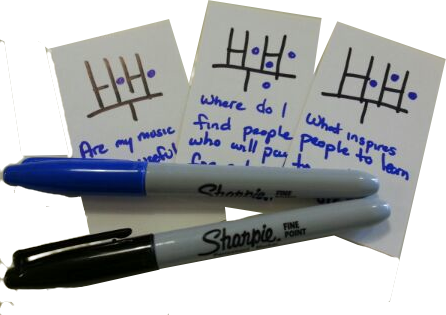 Are my music
useful
Where do I
find people
who will pay
to
What inspires
people to learn
Sharpie FINE
Sharpie FINE
POINT